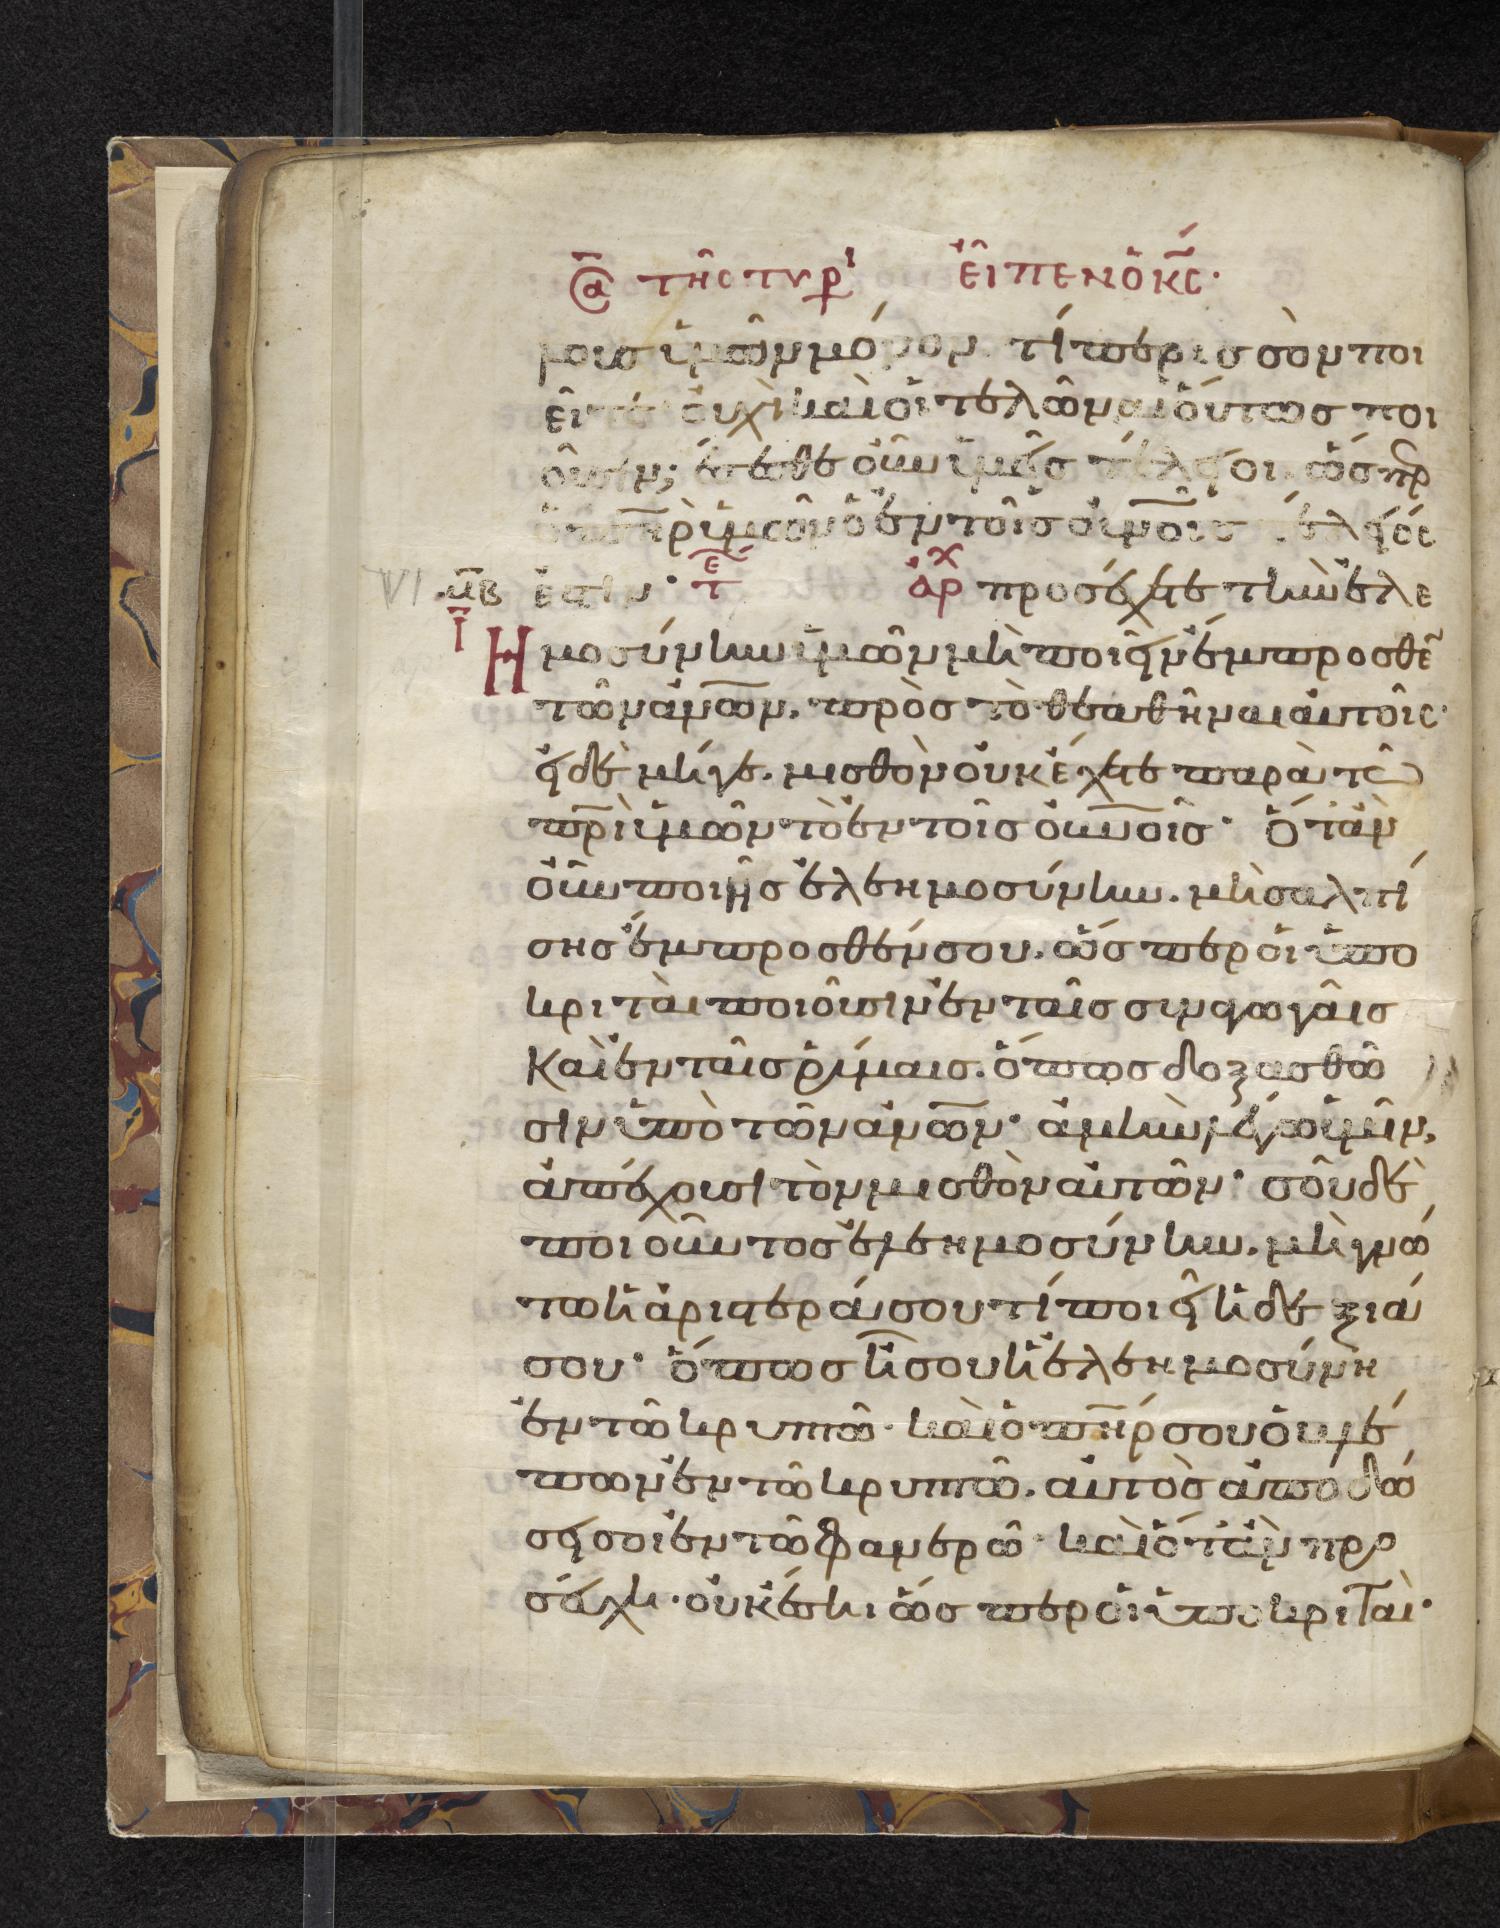 Σα τῆς τυρ εἶπεν ὁ κς·
μους ὑμῶν μόνον τί περισσὸν ποι
εῖτε οὐχὶ καὶ οἱ τελῶναι οὕτως ποι
οῦσιν; ἔσεσθε οὖν ὑμεῖς τέλειοι ὥσπερ
ὁ πηρ ὑμῶν ὁ ἐν τοῖς οὐνοις τέλειός
VI μβ ἐστιν· τε ἀρχ προσέχετε τὴν ἐλε
ι Ημοσύνην ὑμῶν μὴ ποιεῖν ἔμπροσθεν
τῶν ανων, πρὸς τὸ θεαθῆναι αὐτοῖς·
εἰδὲ μήγε. μισθὸν οὐκ ἔχετε παρὰ τῶ
πρι ὑμῶν τῶ ἐν τοῖς οὐνοις· ὅταν
οὖν ποιῆς ἐλεημοσύνην. μὴ σαλπί
σης ἔμπροσθέν σου. ὥσπερ οἱ ὑπο
κριταὶ ποιοῦσιν ἐν ταῖς συναγωγαῖς
καὶ ἐν ταῖς ρύμαις. ὅπως δοξασθῶ
σιν ὑπὸ τῶν ανων· ἀμὴν λέγω ὑμῖν,
ἀπέχουσι τὸν μισθὸν αὐτῶν· σοῦ δὲ
ποιοῦντος ἐλεημοσύνην. μὴ γνώ
τω ἡ ἀριστερά σου τί ποιεῖ ἡ δεξιά
σου· ὅπως ἦ σου ἡ ἐλεημοσύνη
ἐν τῶ κρυπτῶ· καὶ ὁ πηρ σου ὁ βλέ
πων ἐν τῶ κρυπτῶ. αὐτὸς ἀποδώ
σει σοι ἐν τῶ φανερῶ· καὶ ὅταν προ
σεύχη· οὐκ ἔση ὥσπερ οἱ ὑποκριταὶ·